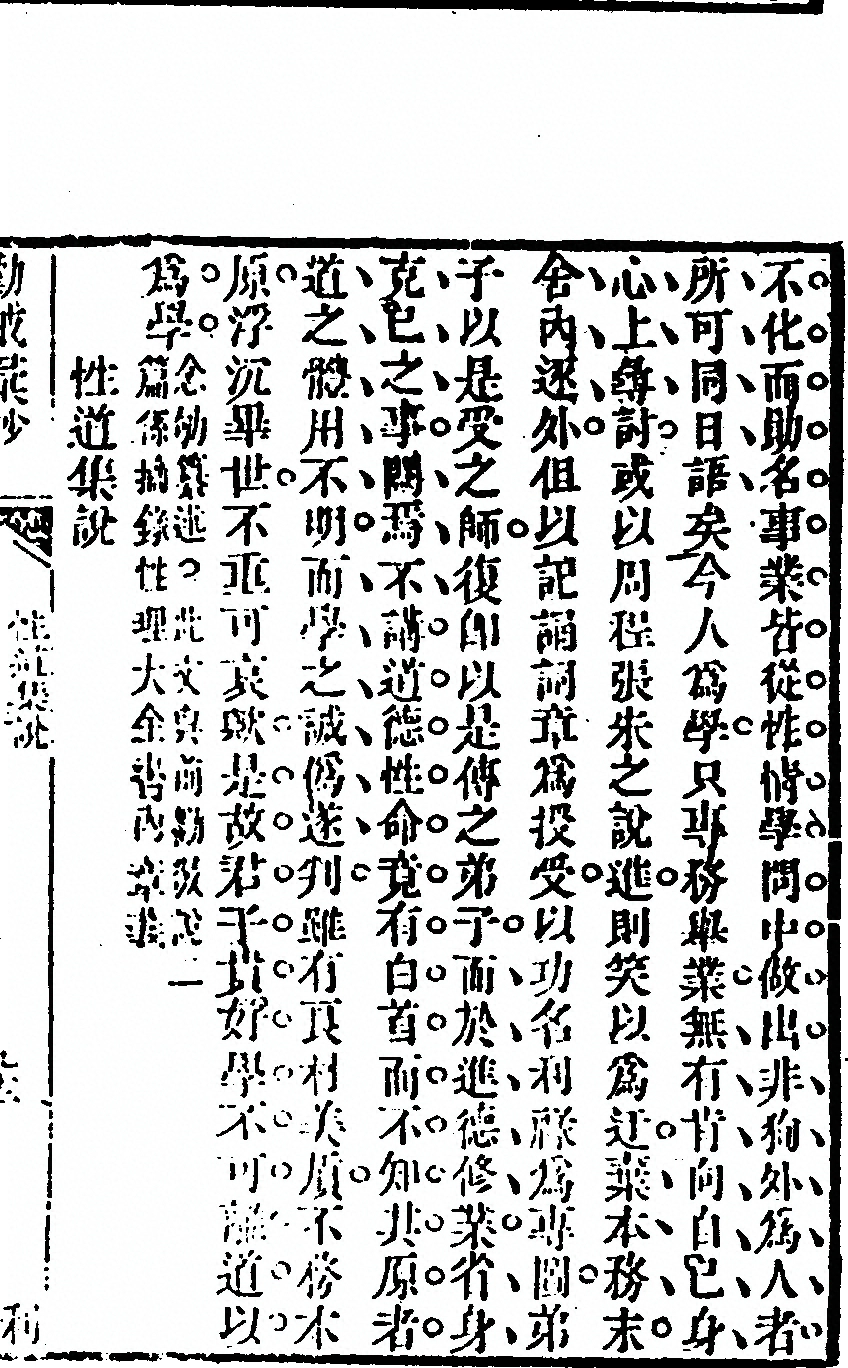 不化而助名事業皆從性情學問中做出非狥外為人者
所可同日語矣今人為學只專務舉業無有肯向自己身
心上尋討或以周程張朱之說進則笑以為迂棄本務末
舍內逐外但以記誦詞章為授受以功名利祿為專圖弟
子以是受之師復即以是傳之弟子而於進德修業省身
克己之事闕焉不講道德性命竟有白首而不知其原者
道之體用不明而學之誠偽遂判雖有良材美質不務本
原浮沉畢世不亦重可哀歟是故君子貴好學不可離道以
為學
念劬纂述此文與前勸戒說一
篇係摘錄性理大全書內
性道集說
勸戒
性道集說
利